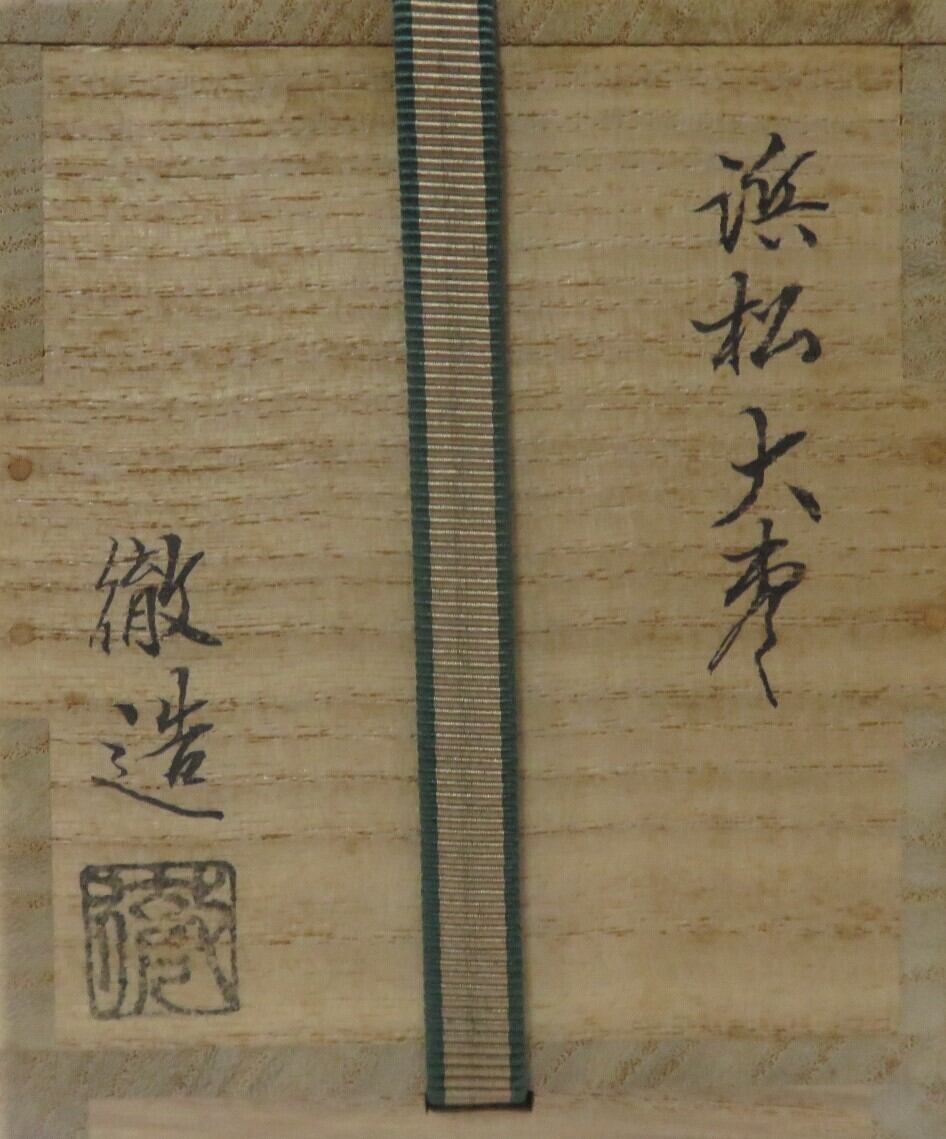 浜松大棗
徹造